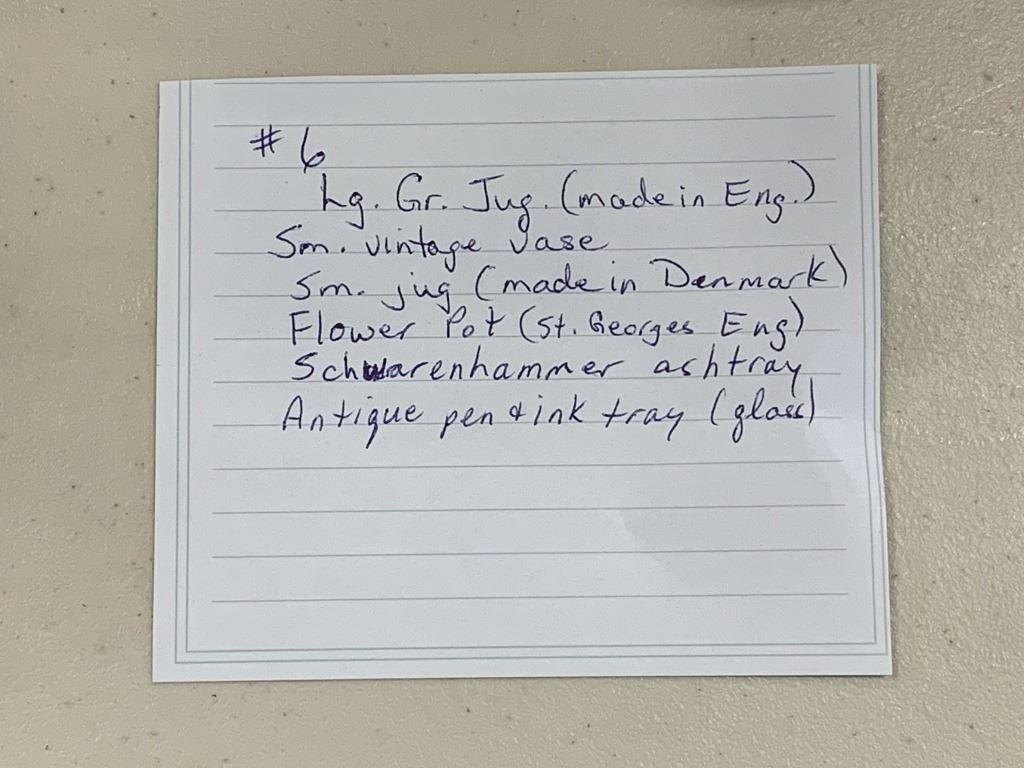 # 6
Lg. Gr. Jug. (made in Eng.)
Sm. vintage vase
Sm. jug (made in Denmark)
Flower Pot (St. Georges Eng)
Schwarenhammer ashtray
Antique pen & ink tray (glass)